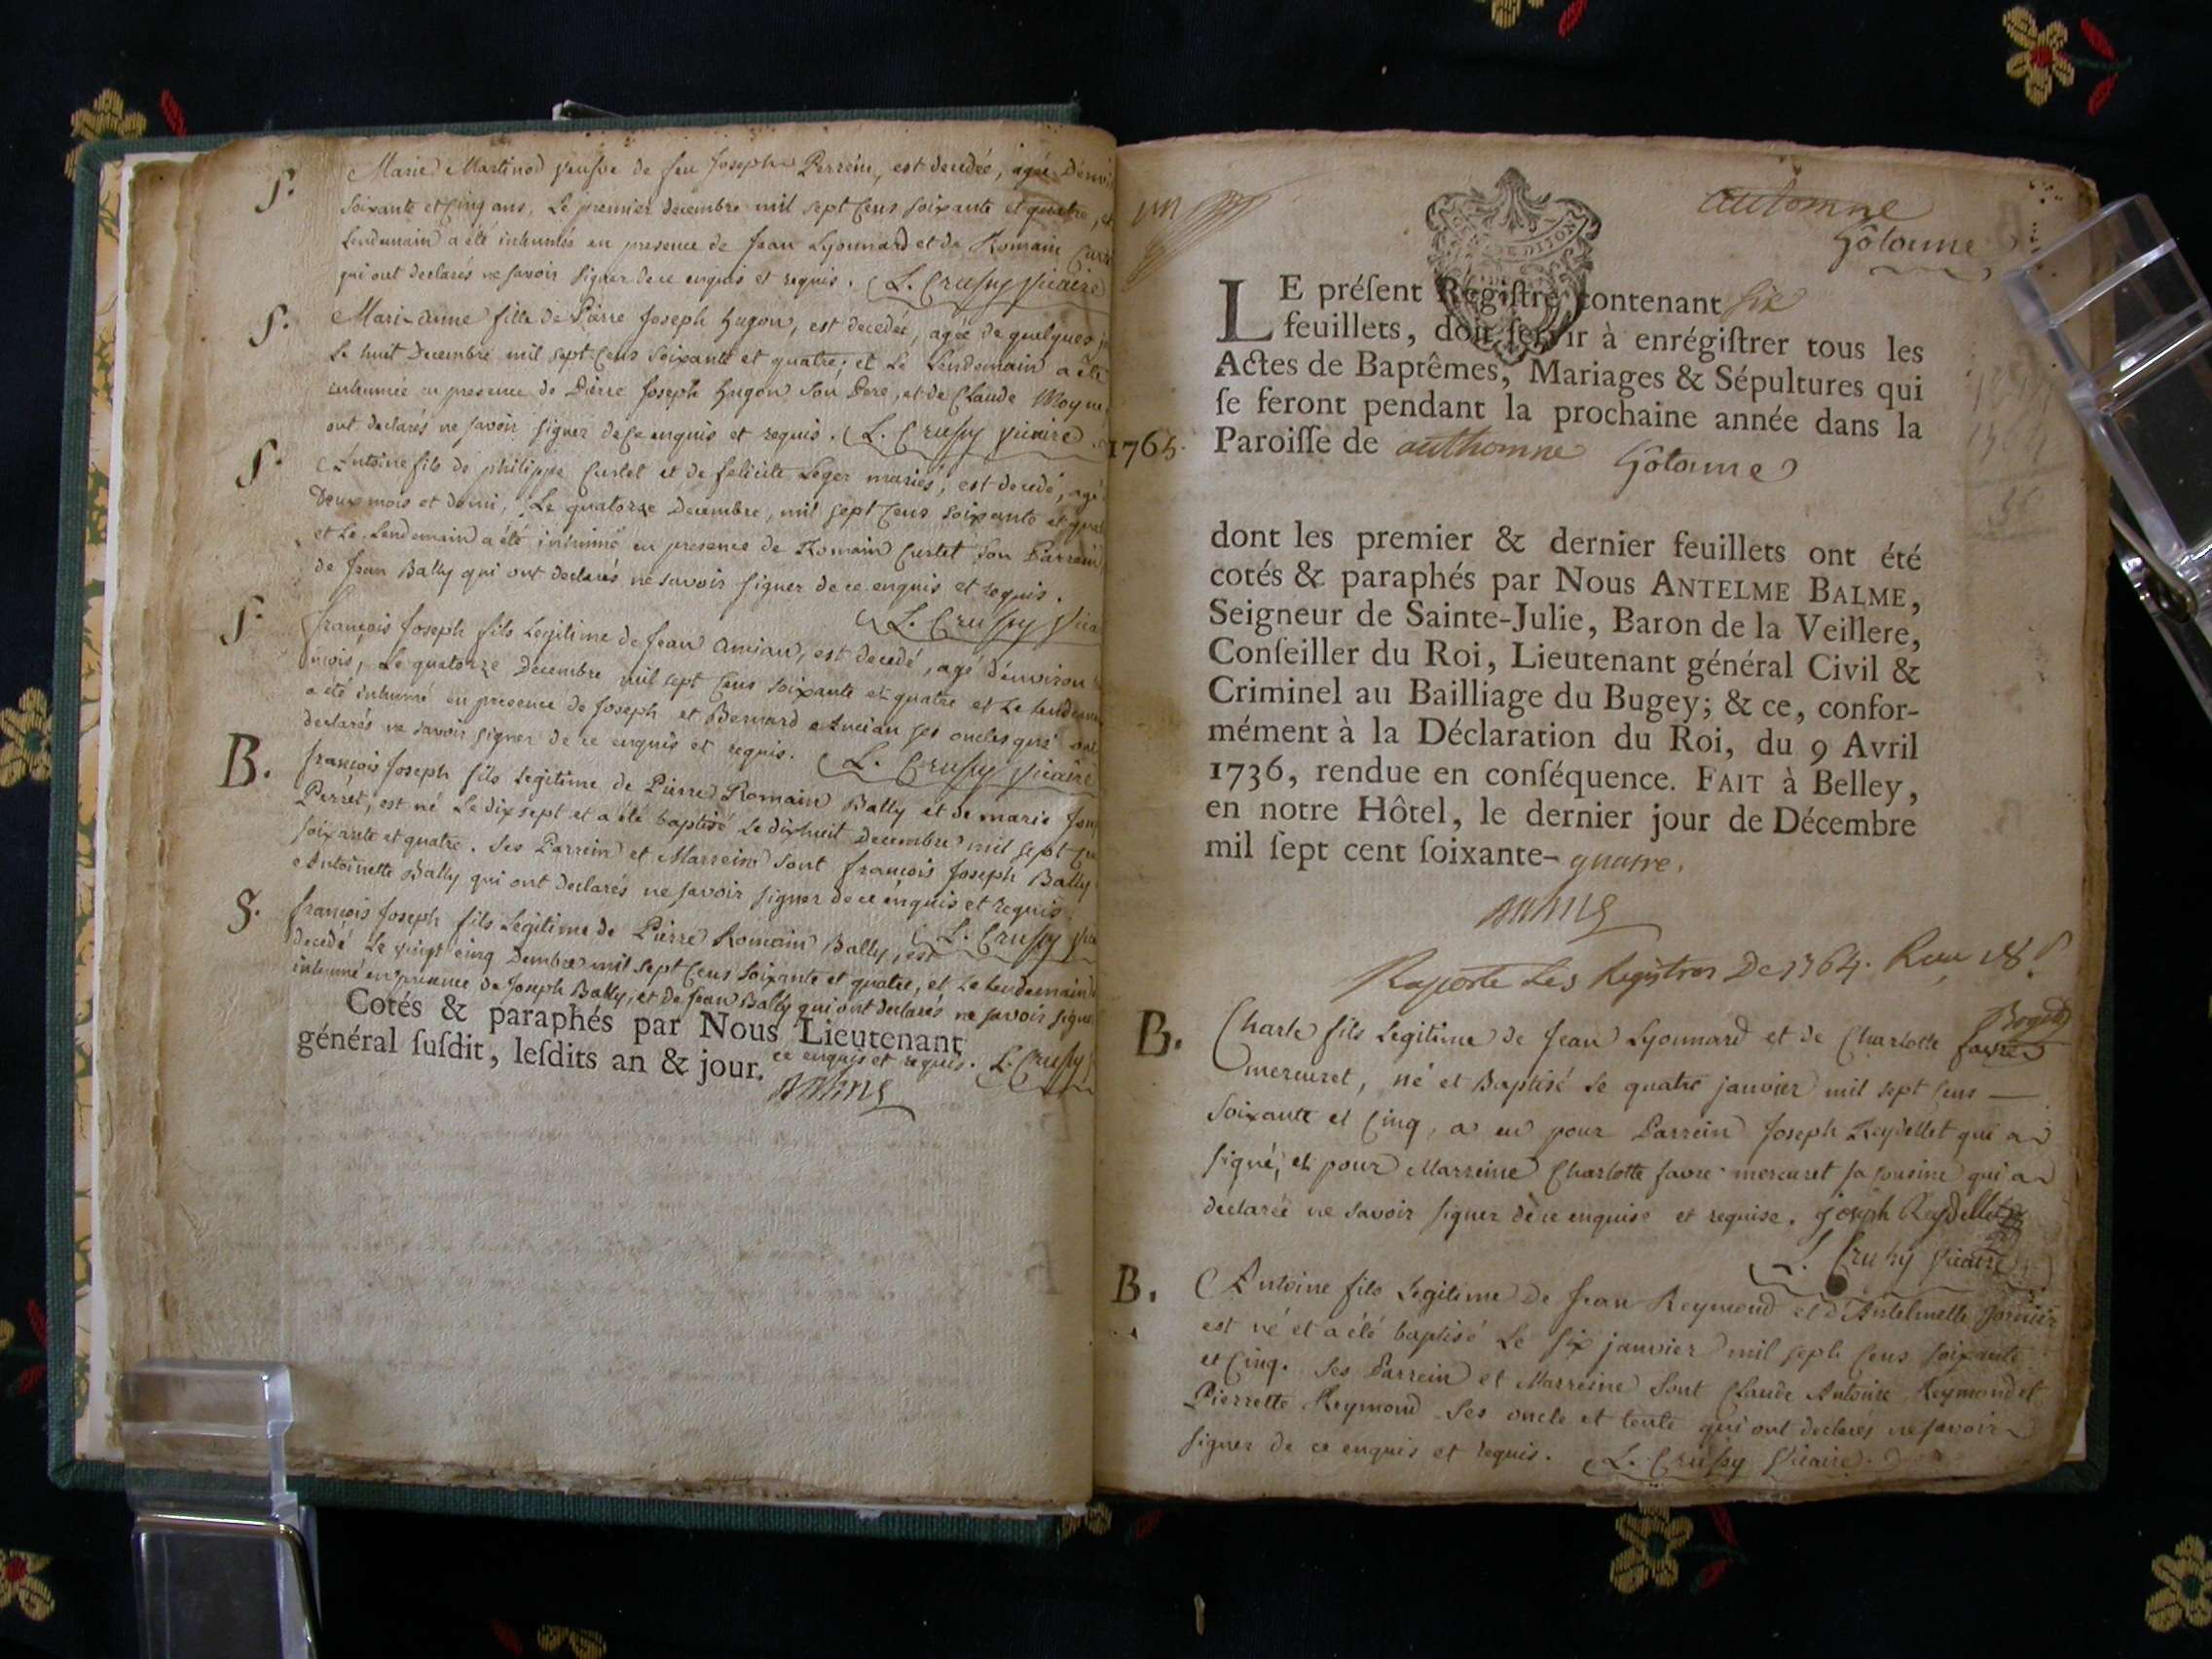 S. Marie Martinod veufve de feu Joseph Perrein, est decedée, agée d'envi
soixante et cinq ans, le premier decembre mil sept cens soixante et quatre, et
lendemain a été inhumée en presence de Jean Lyonnard et de Romain
qui ont declarés ne savoir signer de ce enquis et requis. L. Crussy vicaire
S. Marie-anne fille de Pierre Joseph Hugon, est decedée, agée de quelques
le huit Decembre mil sept cens soixante et quatre; et le lendemain a été
inhumée en presence de Pierre Joseph Hugon son Pere, et de Claude Moyne
ont declarés ne savoir signer de ce enquis et requis. L. Crussy vicaire
S. Antoine fils de philippe Curtet et de felicité Leger mariés, est decedé, agé
Deux mois et demi, Le quatorze Decembre, mil sept cens soixante et qua
et le Lendemain a été inhumé en presence de Romain Curtet son Parrein
de Jean Bally qui ont declarés ne savoir signer de ce enquis et requis.
L. Crussy vica
S. françois Joseph fils Legitime de Jean Ancian, est decedé, agé d'environ
mois, Le quatorze Decembre mil sept cens soixante et quatre et Le lendemain
a été inhumé en presence de Joseph et Bernard Ancian ses oncles qui ont
declarés ne savoir signer de ce enquis et requis. L. Crussy vicaire
B. françois Joseph fils Legitime de Pierre Romain Bally et de marie
Perret, est né Le dixsept et a été baptisé Le dixhuit Decembre mil sept
soixante et quatre. Ses Parrein et Marreine sont françois Joseph Bally
Antoinette Bally qui ont declarés ne savoir signer de ce enquis et requis.
L. Crussy vic
S. françois Joseph fils Legitime de Pierre Romain Bally, est
decedé Le vingt cinq Dembre mil sept cens soixante et quatre, et Le lendemain
inhumé en presence de Joseph Bally, et de Jean Bally qui ont declarés ne savoir signe
Cotés & paraphés par Nous Lieutenant
général ſuſdit, leſdits an & jour.
ce enquis et requis. L. Crussy
automne
hôtonne
LE préſent Regiſtre contenant six
feuillets, doit ſervir à enrégiſtrer tous les
Actes de Baptêmes, Mariages & Sépultures qui
ſe feront pendant la prochaine année dans la
1765. Paroiſſe de authomne hôtonne
dont les premier & dernier feuillets ont été
cotés & paraphés par Nous ANTELME BALME,
Seigneur de Sainte-Julie, Baron de la Veillere,
Conſeiller du Roi, Lieutenant général Civil &
Criminel au Bailliage du Bugey; & ce, confor-
mément à la Déclaration du Roi, du 9 Avril
1736, rendue en conſéquence. FAIT à Belley,
en notre Hôtel, le dernier jour de Décembre
mil ſept cent ſoixante- quatre.
Raporté Les Registres De 1764. Reçu
B. Charle fils Legitime de Jean Lyonnard et de Charlotte favre
mercuret, né et Baptisé le quatre janvier mil sept cens —
soixante et cinq, a eu pour Parrein Joseph Reydellet qui a
signé, et pour Marreine Charlotte favre-mercuret sa cousine qui a
declarée ne savoir signer de ce enquise et requise. joseph Reydellet
L. Crussy vicaire
B. Antoine fils Legitime de Jean Reymond et d'Antelmette
est né et a été baptisé Le six janvier mil sept cens soixante
et cinq. Ses Parrein et Marreine sont Claude Antoine Reymond et
Pierrette Reymond ses oncle et tente qui ont declarés ne savoir
signer de ce enquis et requis. L. Crussy vicaire.